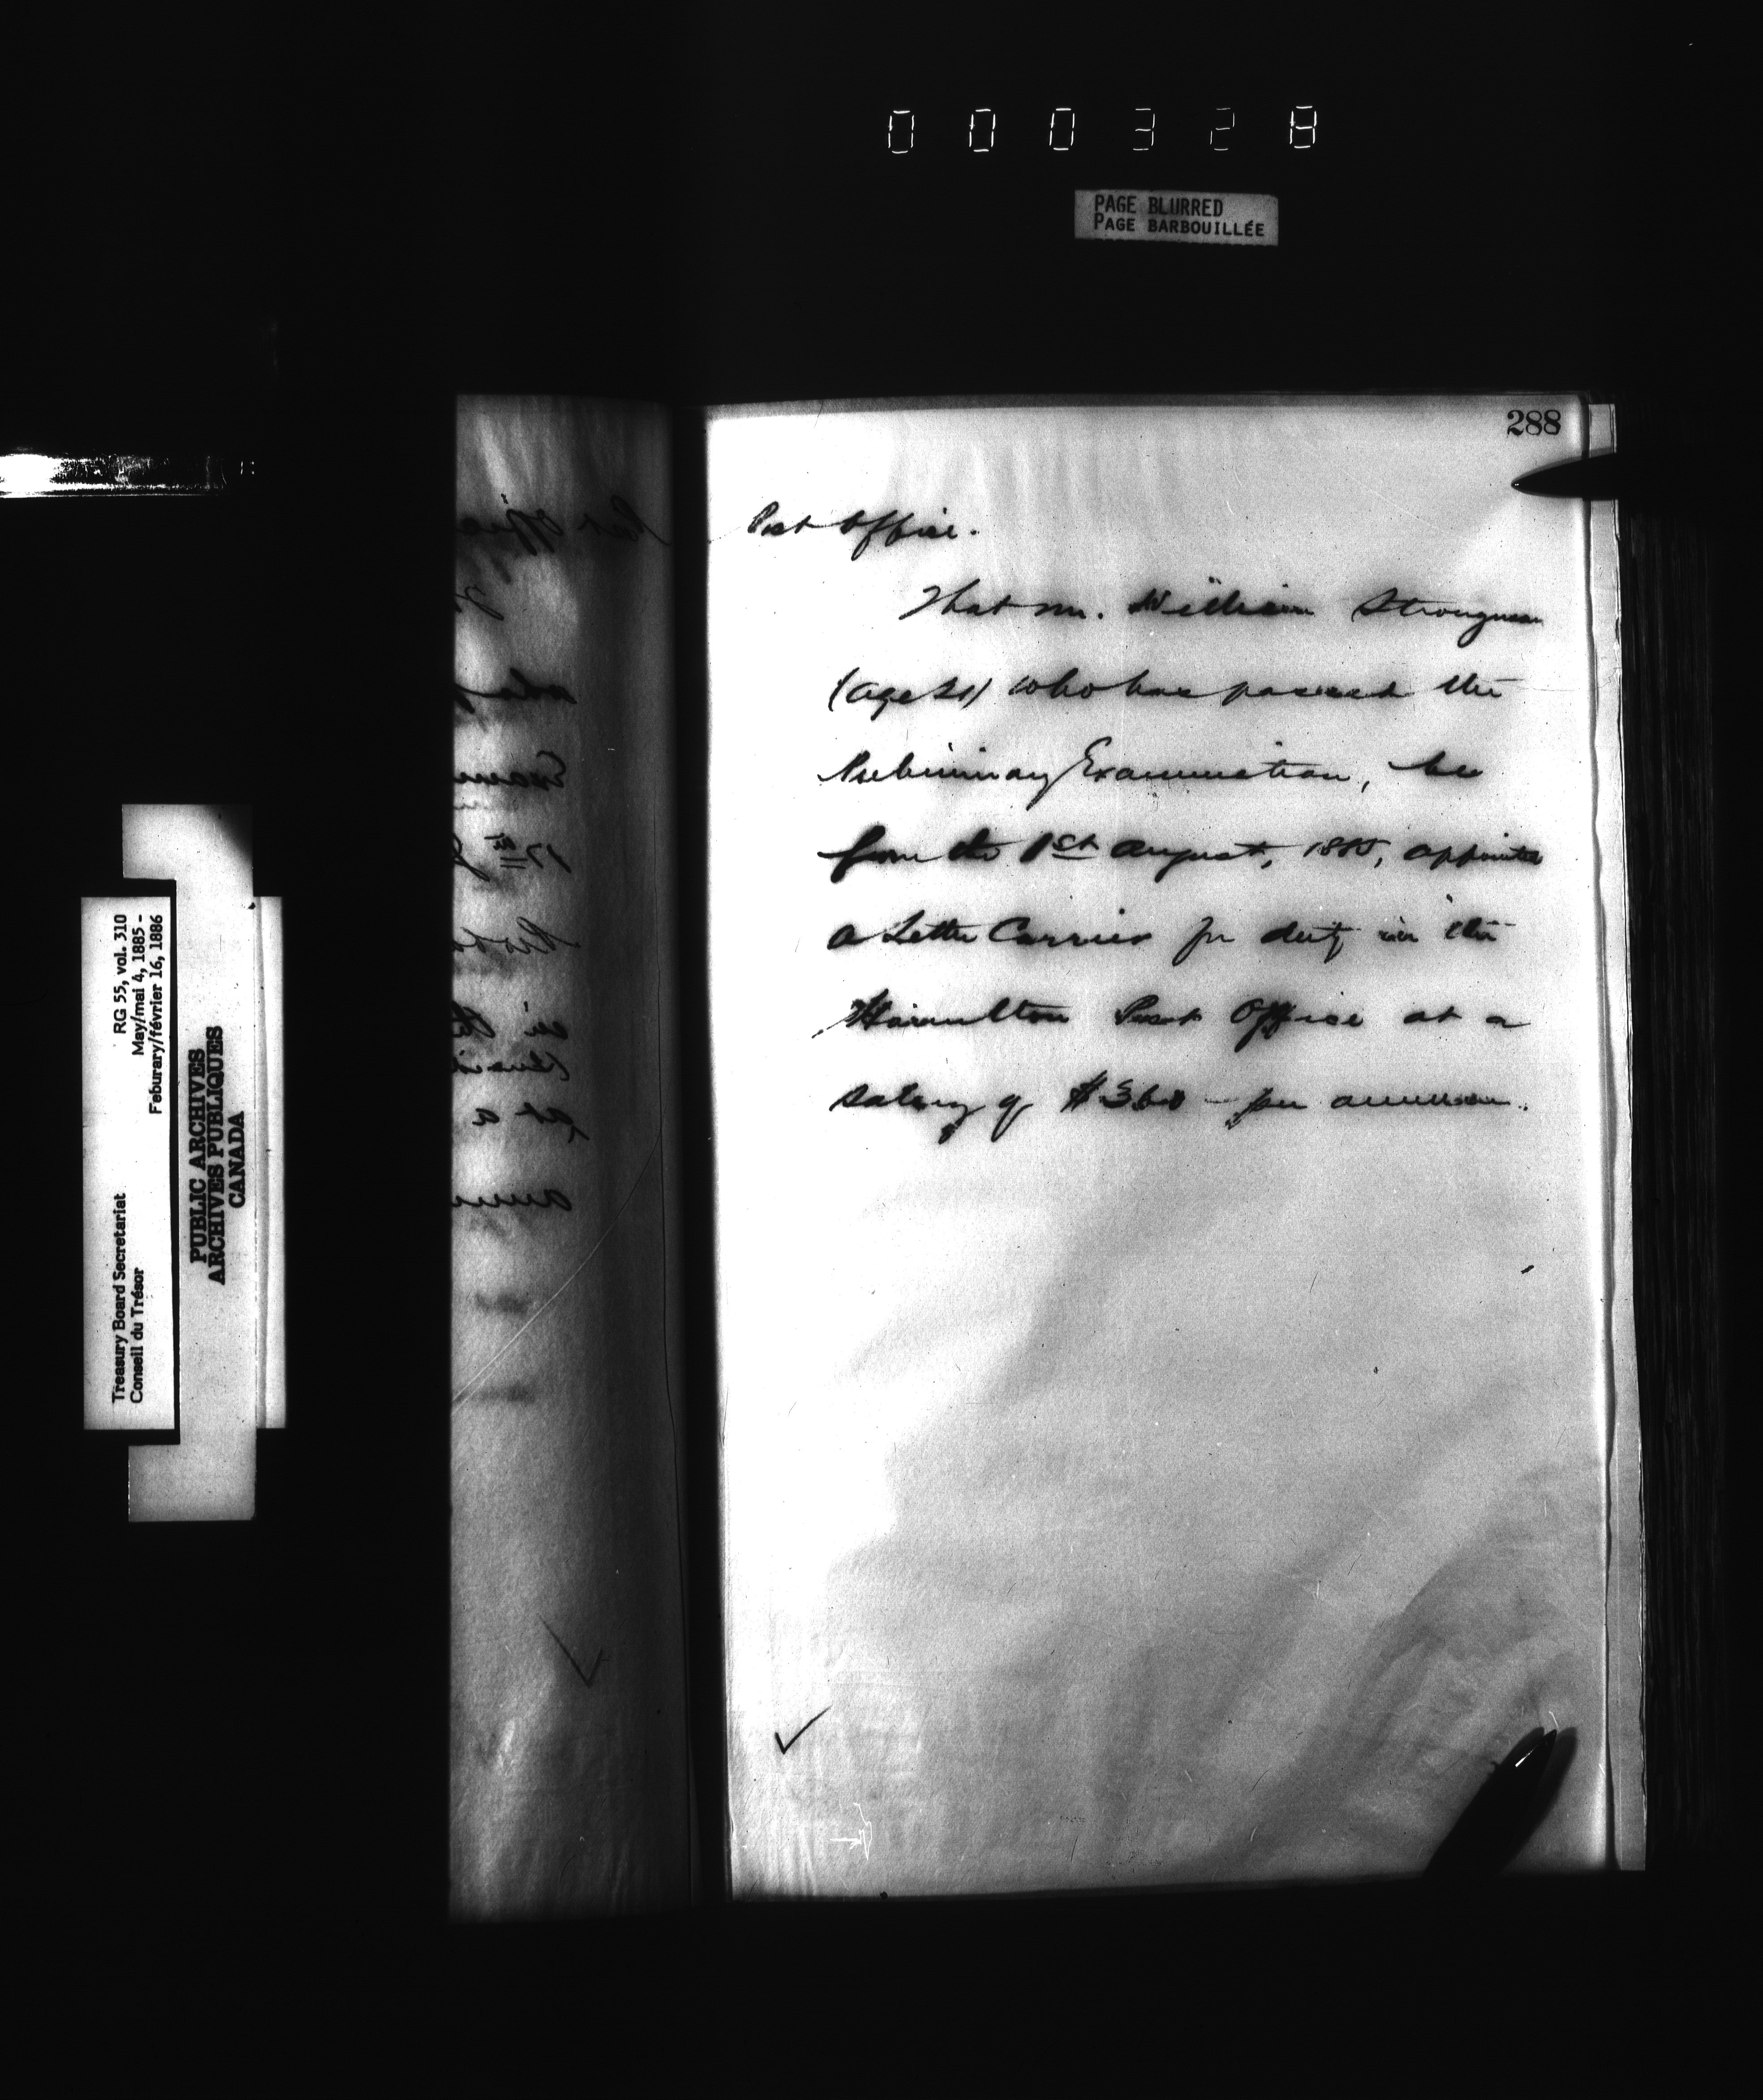 000328
PAGE BLURRED
PAGE BARBOUILLÉE
288
Post Office.
That Mr. William Strongman
(age 21) who has passed the
Preliminary Examination, be
from the 1st August, 1885, appointed
a Letter Carrier for duty in the
Hamilton Post Office at a
salary of $360 - per annum.
Treasury Board Secretariat
Conseil du Trésor
RG 55, vol. 310
May/mai 4, 1885 -
Feburary/février 16, 1886
PUBLIC ARCHIVES
ARCHIVES PUBLIQUES
CANADA